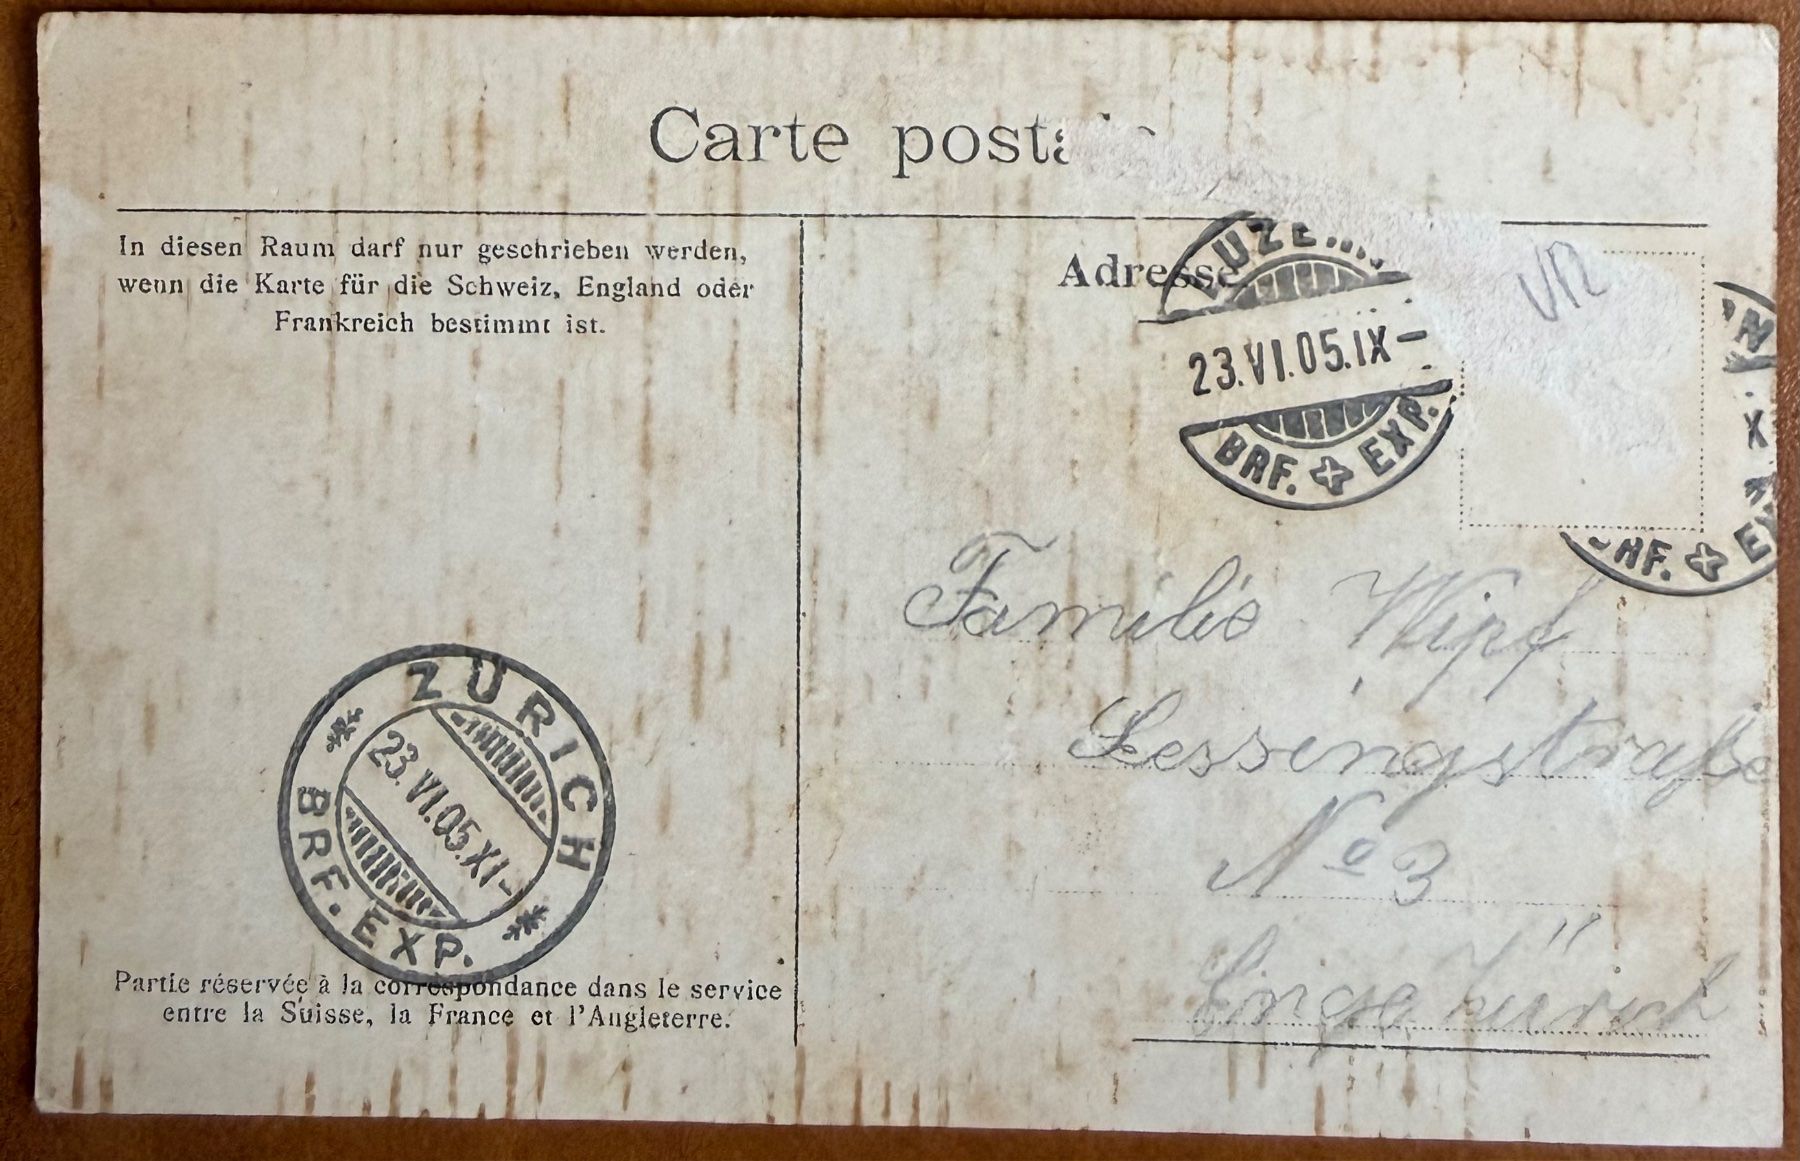 Carte posta
In diesen Raum darf nur geschrieben werden,
wenn die Karte für die Schweiz, England oder
Frankreich bestimmt ist.
Adresse
LUZERN
23.VI.05.IX–
BRF. EXP.
BRF. E
X
Familie Wipf
Lessingstraße
No 3
Enge Zürich
ZÜRICH
23.VI.05.XI–
BRF. EXP.
Partie réservée à la correspondance dans le service
entre la Suisse, la France et l'Angleterre.